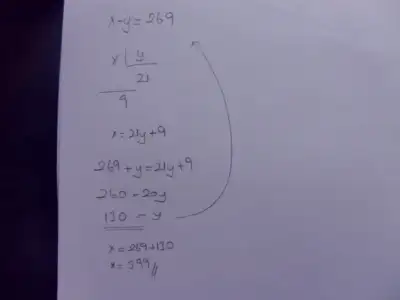 x-y=269
x | y
21
9
x=21y+9
269+y=21y+9
260=20y
130=y
x=269+130
x=399//